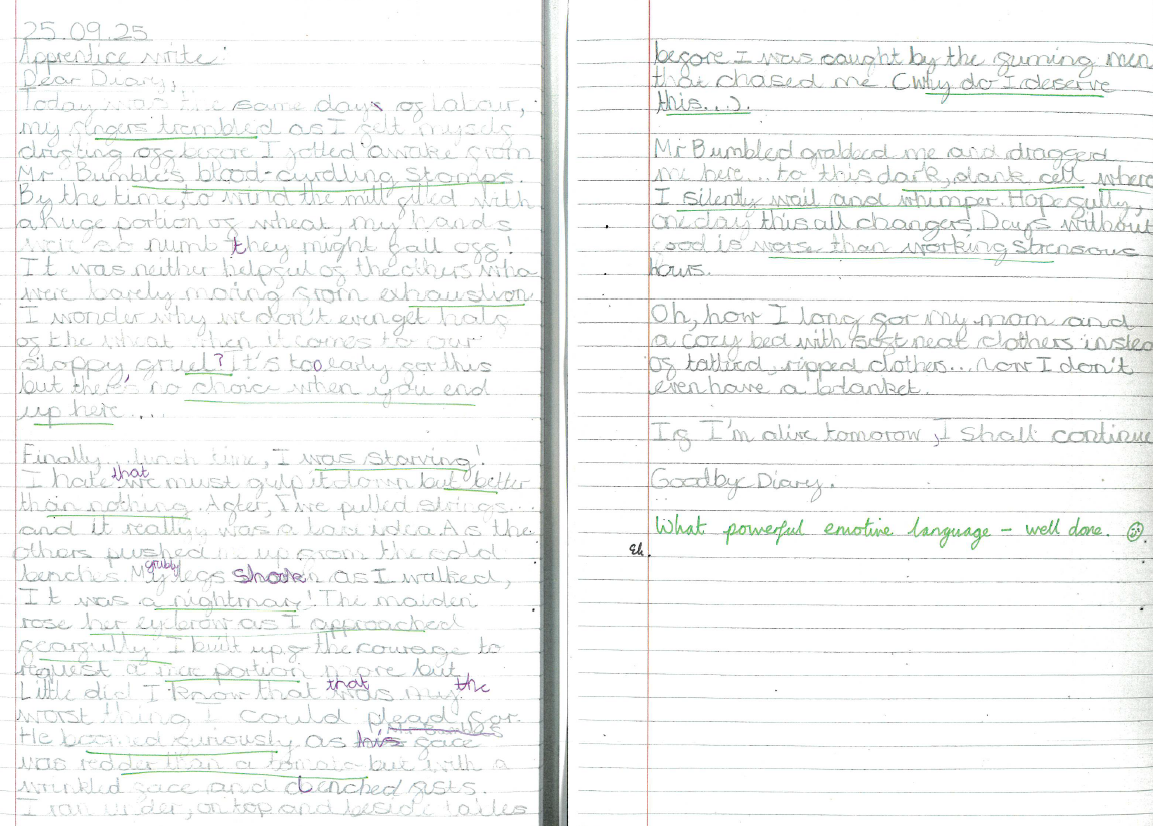 25.09.25
Apprentice write:
Dear Diary,
Today was the same days of labour,
my fingers trembled as I felt myself
drifting off before I jolted awake from
Mr. Bumble's blood-curdling stomps.
By the time, to wind the mill filled with
a huge portion of wheat, my hands
were so numb they might fall off!
It was neither helpful of the others who
were barely moving from exhaustion
I wonder why we don't even get half
of the wheat when it comes to our
sloppy, gruel? It's too early for this
but there, no choice when you end
up here....
Finally, lunch time, I was starving!
I hate that we must gulp it down but better
than nothing. After, I've pulled strings...
and it really was a bad idea. As the
others pushed me up from the cold
benches. My grubby legs shook as I walked,
It was a nightmar! The maiden
rose her eyebrow as I approached
fearfully. I built up the courage to
request a portion more but
Little did I know that that was my the
worst thing I could plead for.
He boomed furiously as his face
was redder than a tomato but with a
wrinkled face and clenched fists.
I ran under, on top and beside tables
before I was caught by the fuming men
that chased me. (Why do I deserve
this...).
Mr Bumbled grabbed me and dragged
me here... to this dark, dank cell where
I silently wail and whimper. Hopefully,
on day this all changes. Days without
food is worse than working strensous
hours.
Oh, how I long for my mom and
a cozy bed with soft neat clothers instea
of tatterd, ripped clothers... now I don't
even have a blanket.
If I'm alive tomorow, I shall continue
Goodby Diary.
What powerful emotive language - well done.